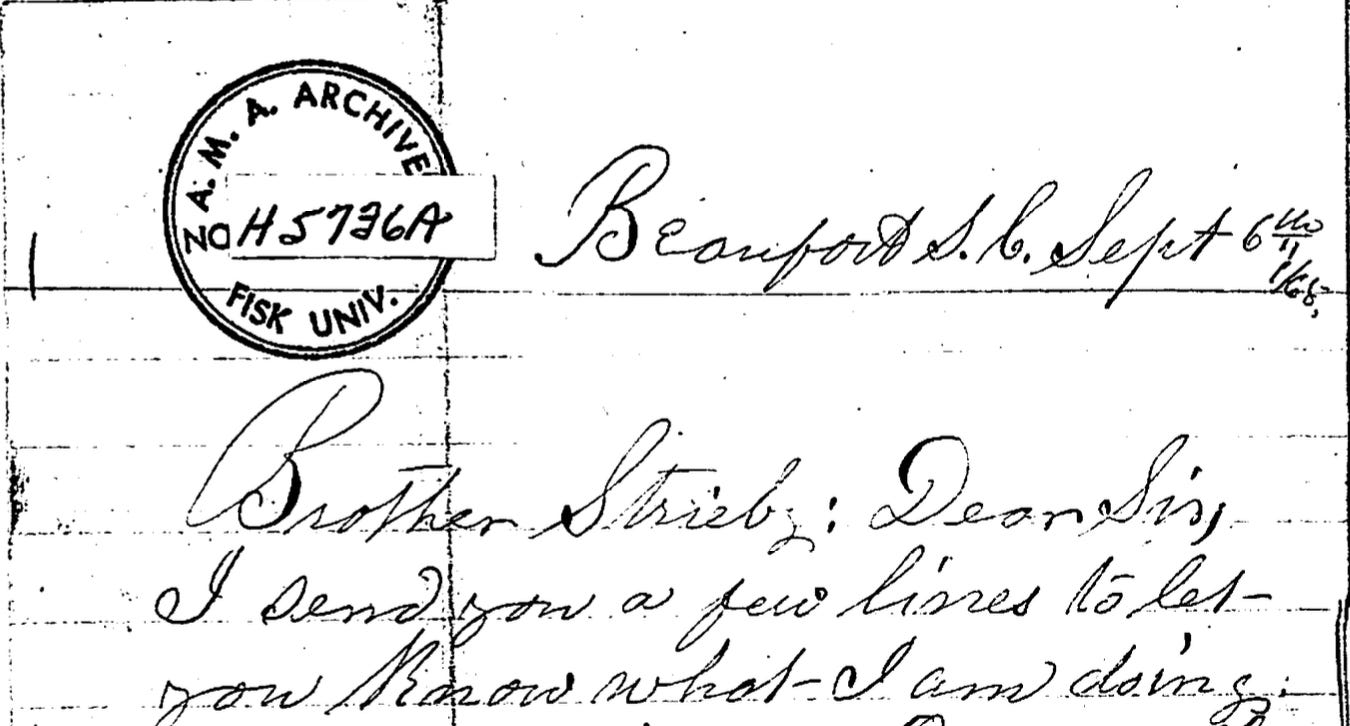 A. M. A. ARCHIVE
NO H5736A
FISK UNIV.
Beaufort S. C. Sept 6th
Brother Strieby: Dear Sir,
I send you a few lines to let
you know what I am doing.